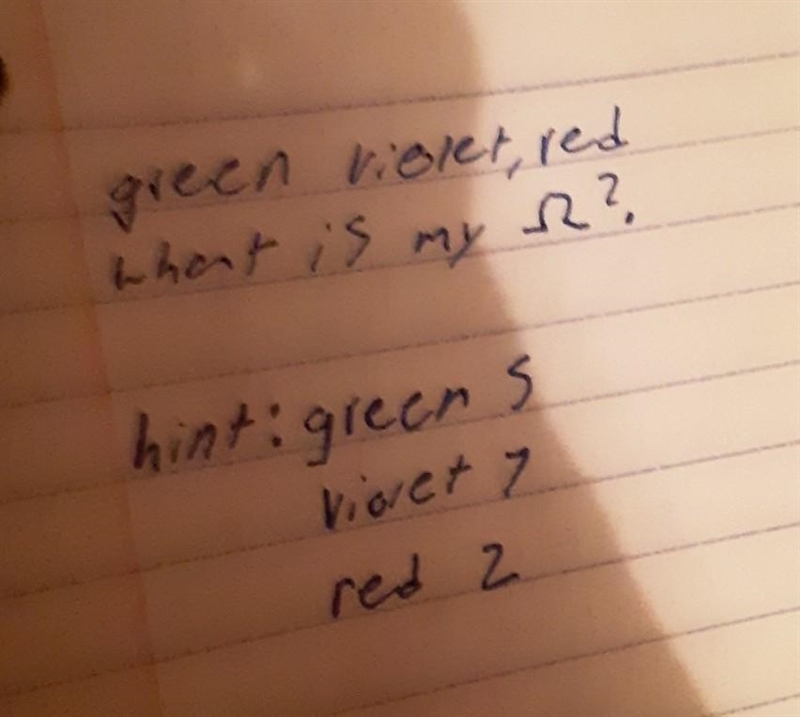 green violet, red
what is my Ω?.
hint: green 5
violet 7
red 2